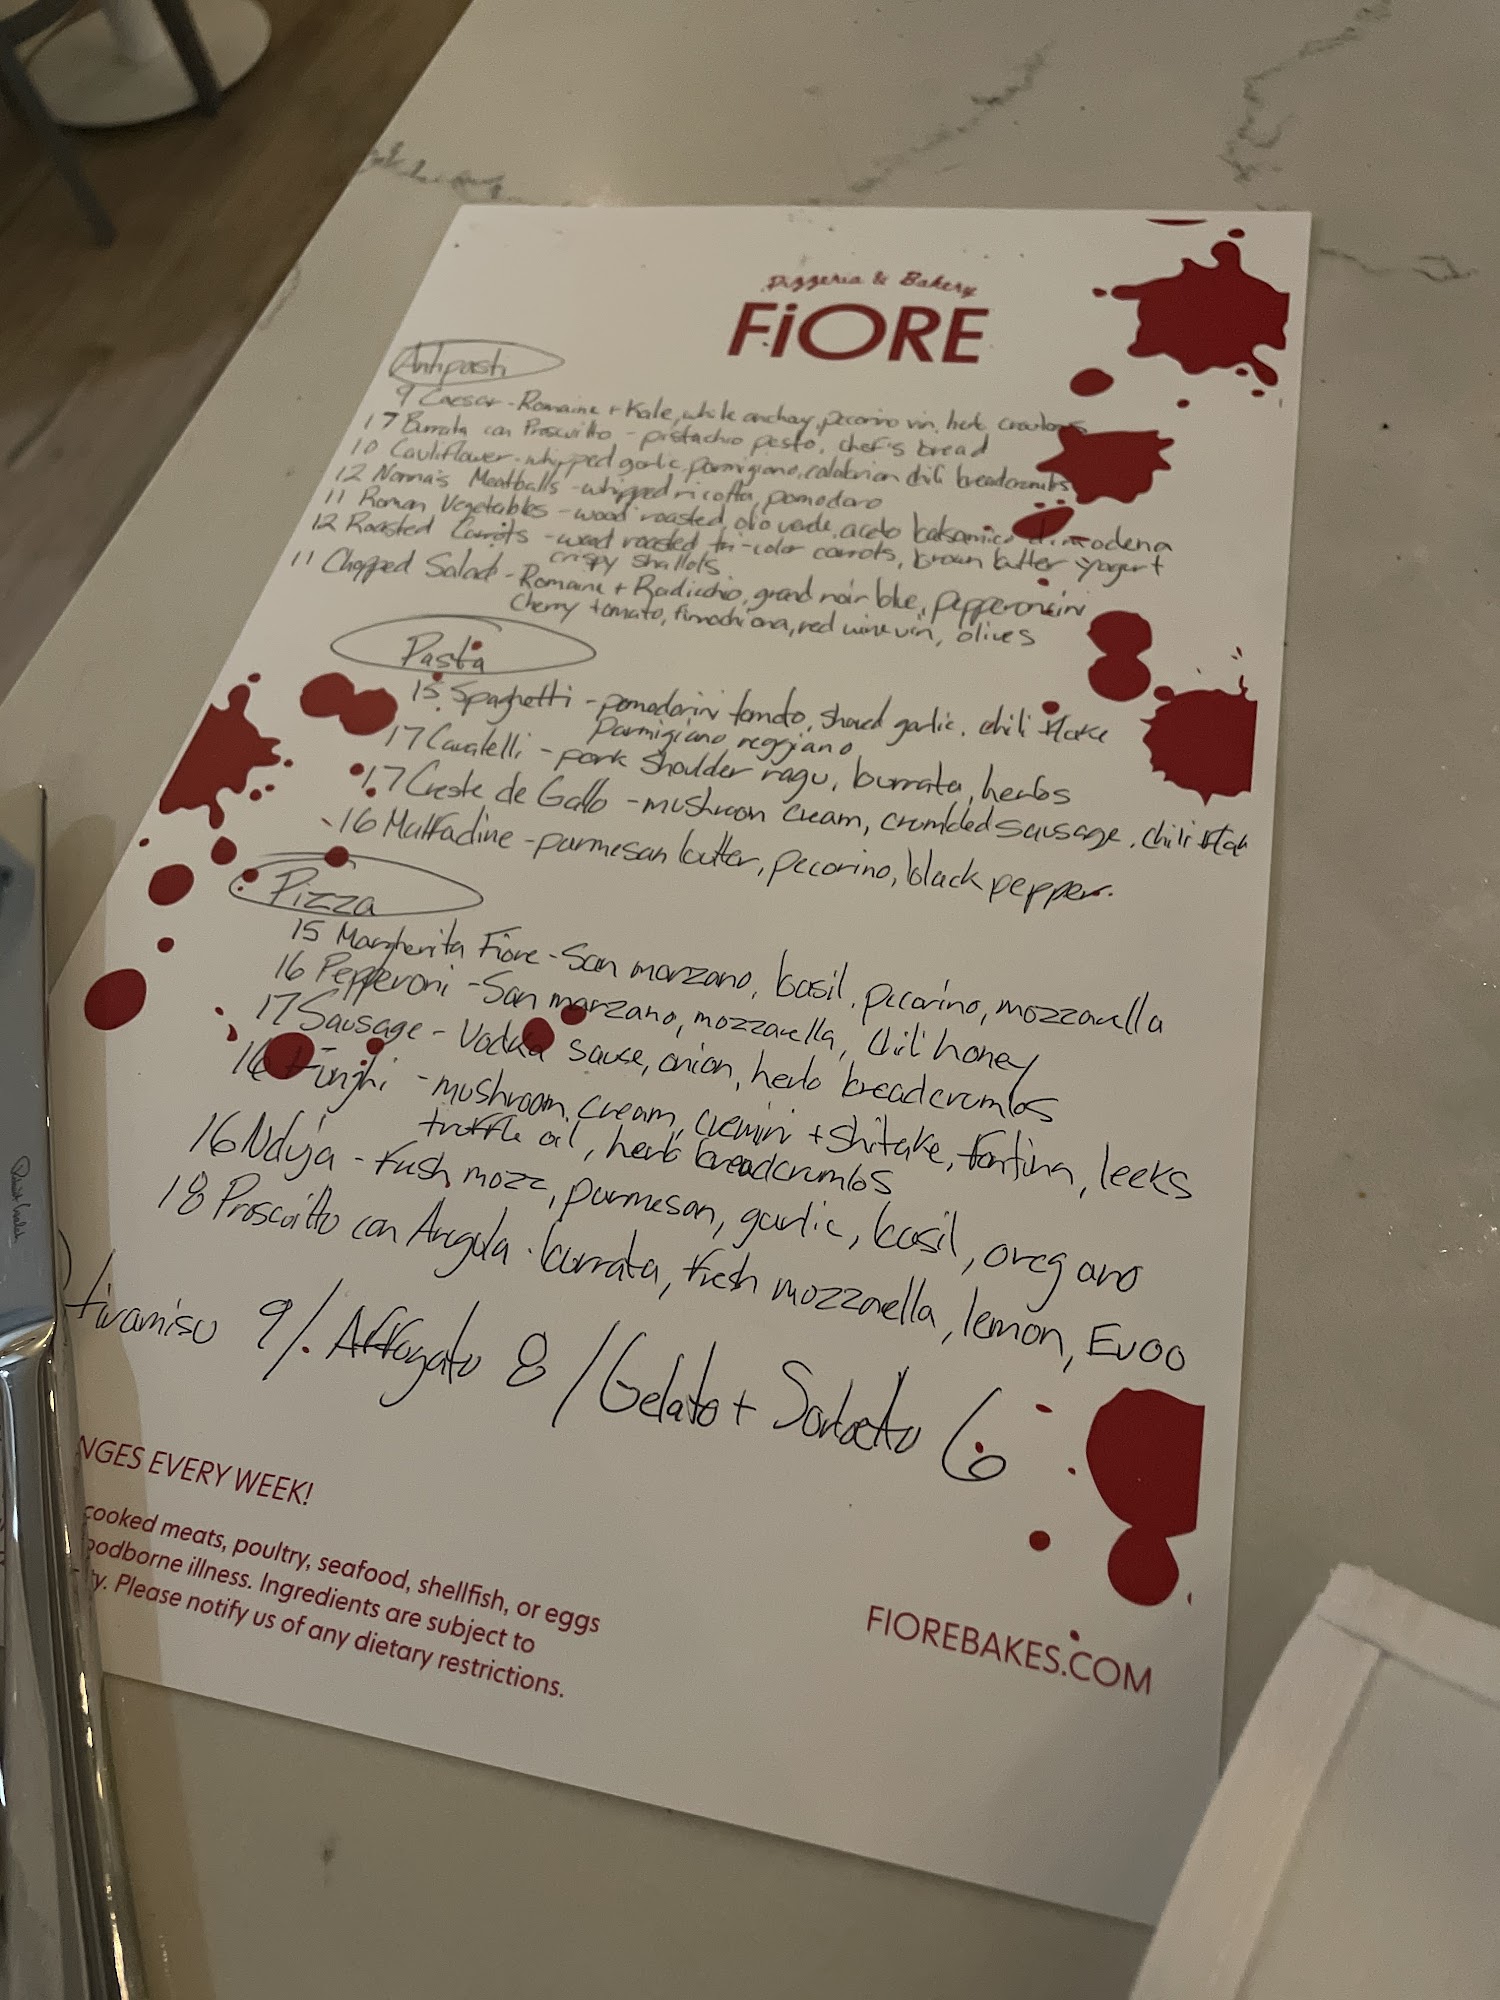 Pizzeria & Bakery
FiORE
Antipasti
9 Caesar - Romaine + Kale, white anchovy, pecorino vin, herb croutons
17 Burrata con Proscuitto - pistachio pesto, chef's bread
10 Cauliflower - whipped garlic, parmigiano, calabrian chili breadcrumbs
12 Nonna's Meatballs - whipped ricotta, pomodoro
11 Roman Vegetables - wood roasted, olio verde, aceto balsamico di modena
12 Roasted Carrots - wood roasted tri-color carrots, brown butter yogurt
crispy shallots
11 Chopped Salad - Romaine + Radicchio, grand noir blue, pepperoncini
Cherry tomato, red wine vin, olives
Pasta
15 Spaghetti - pomodorini tomato, shaved garlic, chili flake
Parmigiano reggiano
17 Cavatelli - pork shoulder ragu, burrata, herbs
17 Creste de Gallo - mushroom cream, crumbled sausage, chili flake
16 Malfadine - parmesan butter, pecorino, black pepper.
Pizza
15 Margherita Fiore - San marzano, basil, pecorino, mozzarella
16 Pepperoni - San marzano, mozzarella, chili honey
17 Sausage - Vodka sauce, onion, herb breadcrumbs
16 Funghi - mushroom cream, cremini + shitake, fontina, leeks
truffle oil, herb breadcrumbs
16 Nduja - fresh mozz, parmesan, garlic, basil, oregano
18 Proscuitto con Arugula - burrata, fresh mozzarella, lemon, Evoo
tiramisu 9 / Affogato 8 / Gelato + Sorbetto 6
NGES EVERY WEEK!
cooked meats, poultry, seafood, shellfish, or eggs
oodborne illness. Ingredients are subject to
ty. Please notify us of any dietary restrictions.
FIOREBAKES.COM